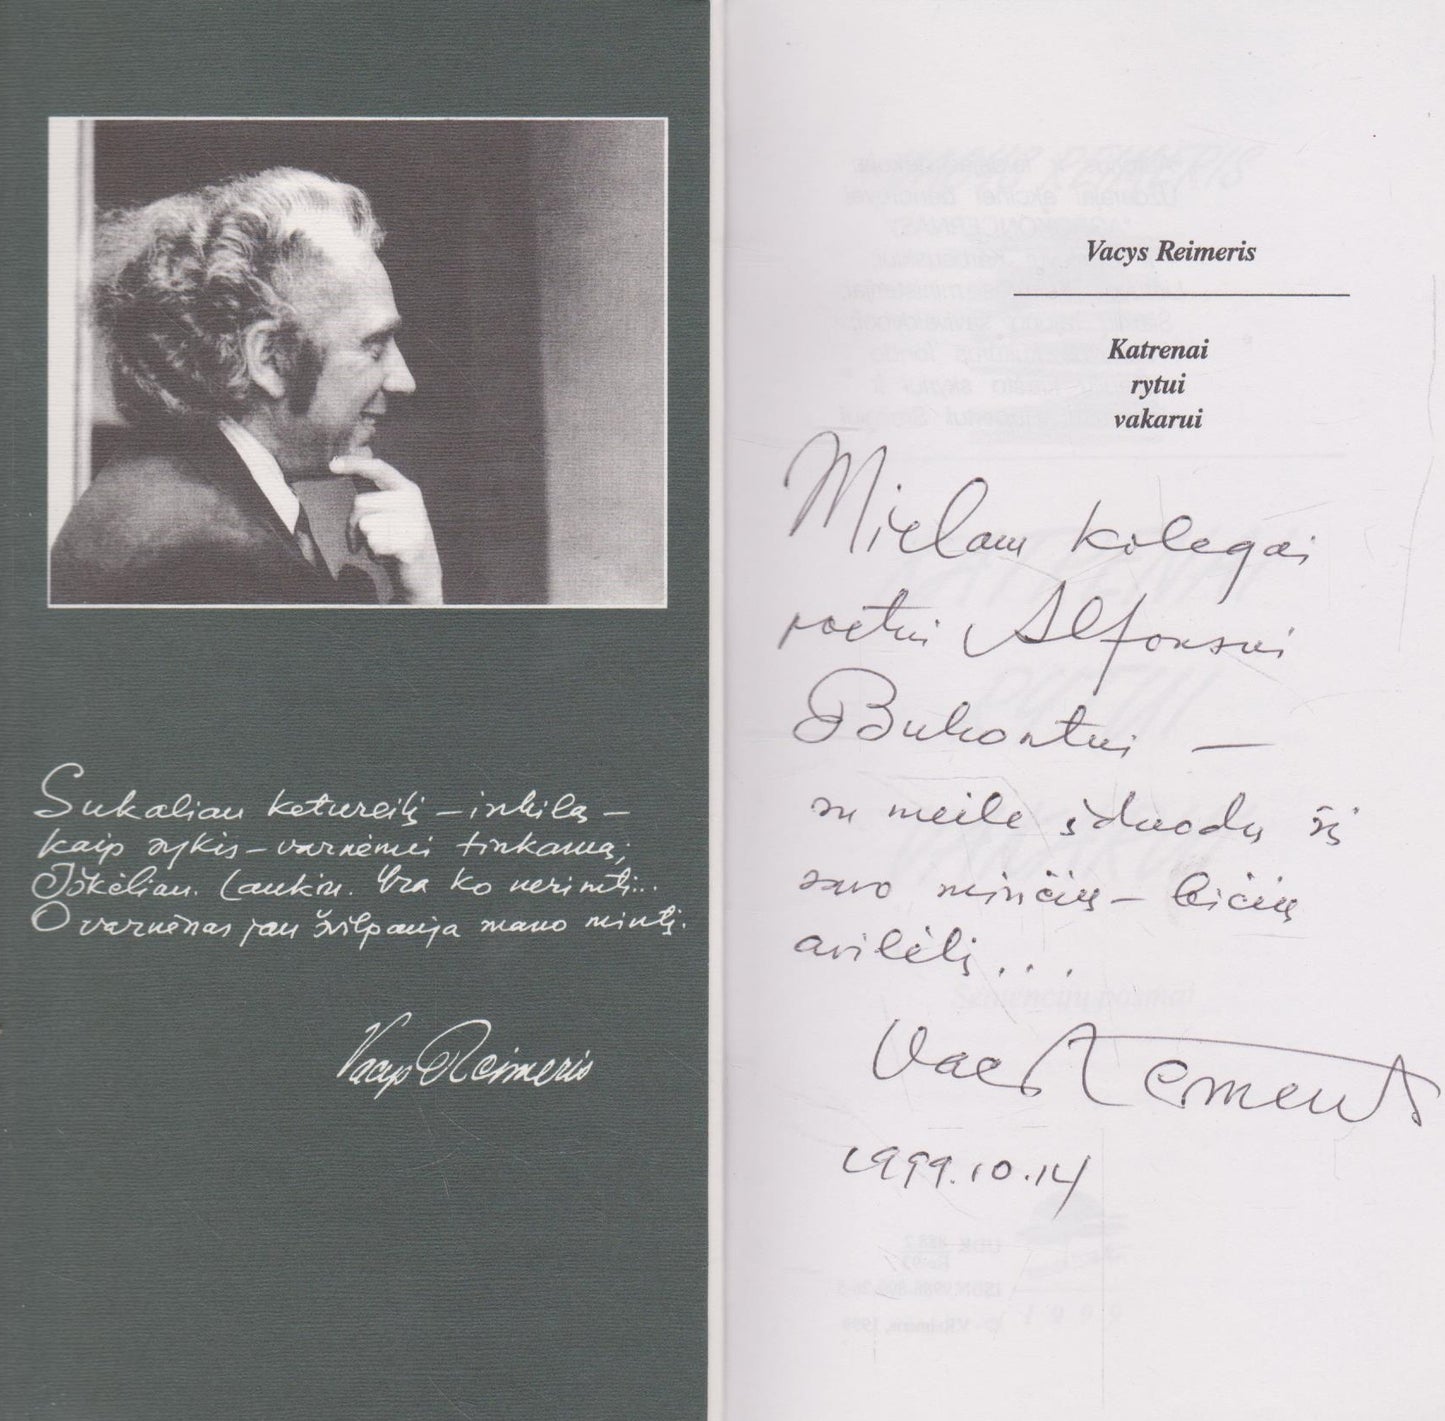 Sukaliau ketureilį – inkilą –
kaip rykis – varnėnui tinkamą;
Iškėliau. Laukiu. Yra ko nerimti...
O varnėnas jau švilpauja mano mintį.
Vacys Reimeris
Vacys Reimeris
Katrenai
rytui
vakarui
Mielam kolegai
poetui Alfonsui
Bukontui –
su meile įduodu šį
savo minčių – bičių
avilėlį...
Vacys Reimeris
1999.10.14
Sentencijų posmai